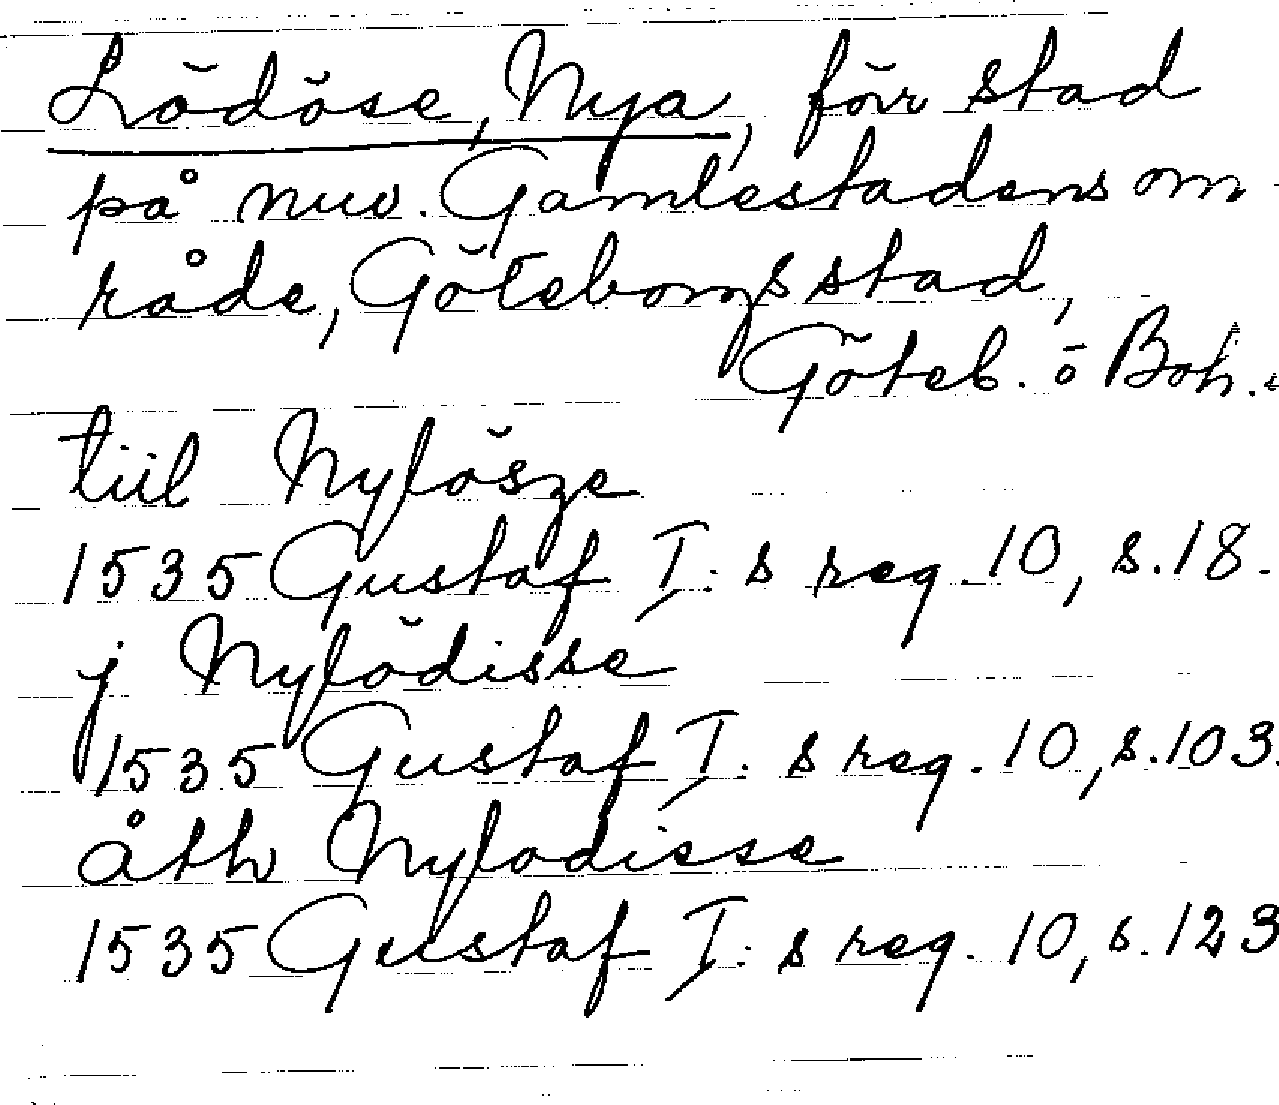 Lödöse, Nya, förr stad
på nuv. Gamlestadens om-
råde, Göteborgs stad,
Göteb. o Boh.
tiil Nylösze
1535 Gustaf I:s reg. 10, s. 18.
j Nylödisse
1535 Gustaf I:s reg. 10, s. 103.
åth Nylodisse
1535 Gustaf I:s reg. 10, s. 123